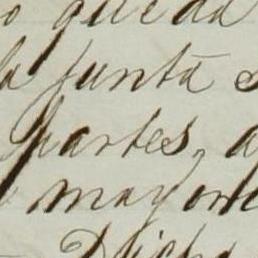 o queda
la junta s
partes, a
mayore
Dicha